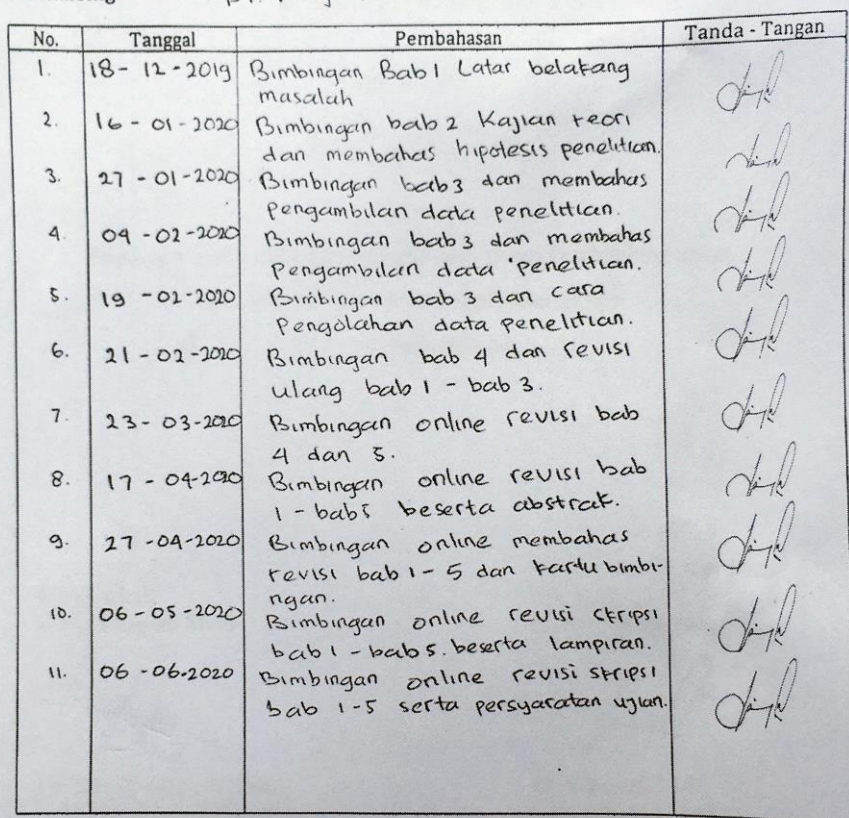 No. Tanggal Pembahasan Tanda - Tangan
1. 18 - 12 - 2019 Bimbingan Bab 1 Latar belakang
masalah
2. 16 - 01 - 2020 Bimbingan bab 2 Kajian teori
dan membahas hipotesis penelitian.
3. 27 - 01 - 2020 Bimbingan bab 3 dan membahas
Pengambilan data penelitian.
4. 04 - 02 - 2020 Bimbingan bab 3 dan membahas
Pengambilan data penelitian.
5. 19 - 02 - 2020 Bimbingan bab 3 dan cara
Pengolahan data penelitian.
6. 21 - 02 - 2020 Bimbingan bab 4 dan revisi
ulang bab 1 - bab 3.
7. 23 - 03 - 2020 Bimbingan online revisi bab
4 dan 5.
8. 17 - 04 - 2020 Bimbingan online revisi bab
1 - bab 5 beserta abstrak.
9. 27 - 04 - 2020 Bimbingan online membahas
revisi bab 1 - 5 dan kartu bimbi-
ngan.
10. 06 - 05 - 2020 Bimbingan online revisi skripsi
bab 1 - bab 5. beserta lampiran.
11. 06 - 06.2020 Bimbingan online revisi skripsi
bab 1 - 5 serta persyaratan ujian.